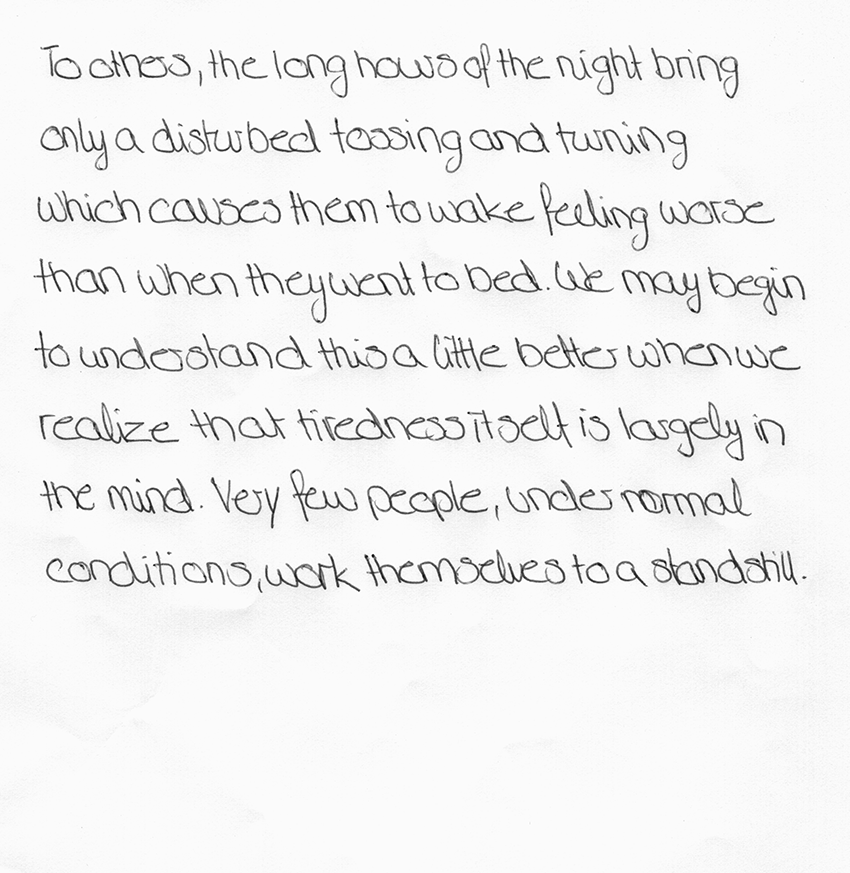 To others, the long hours of the night bring
only a disturbed tossing and turning
which causes them to wake feeling worse
than when they went to bed. We may begin
to understand this a little better when we
realize that tiredness itself is largely in
the mind. Very few people, under normal
conditions, work themselves to a standstill.